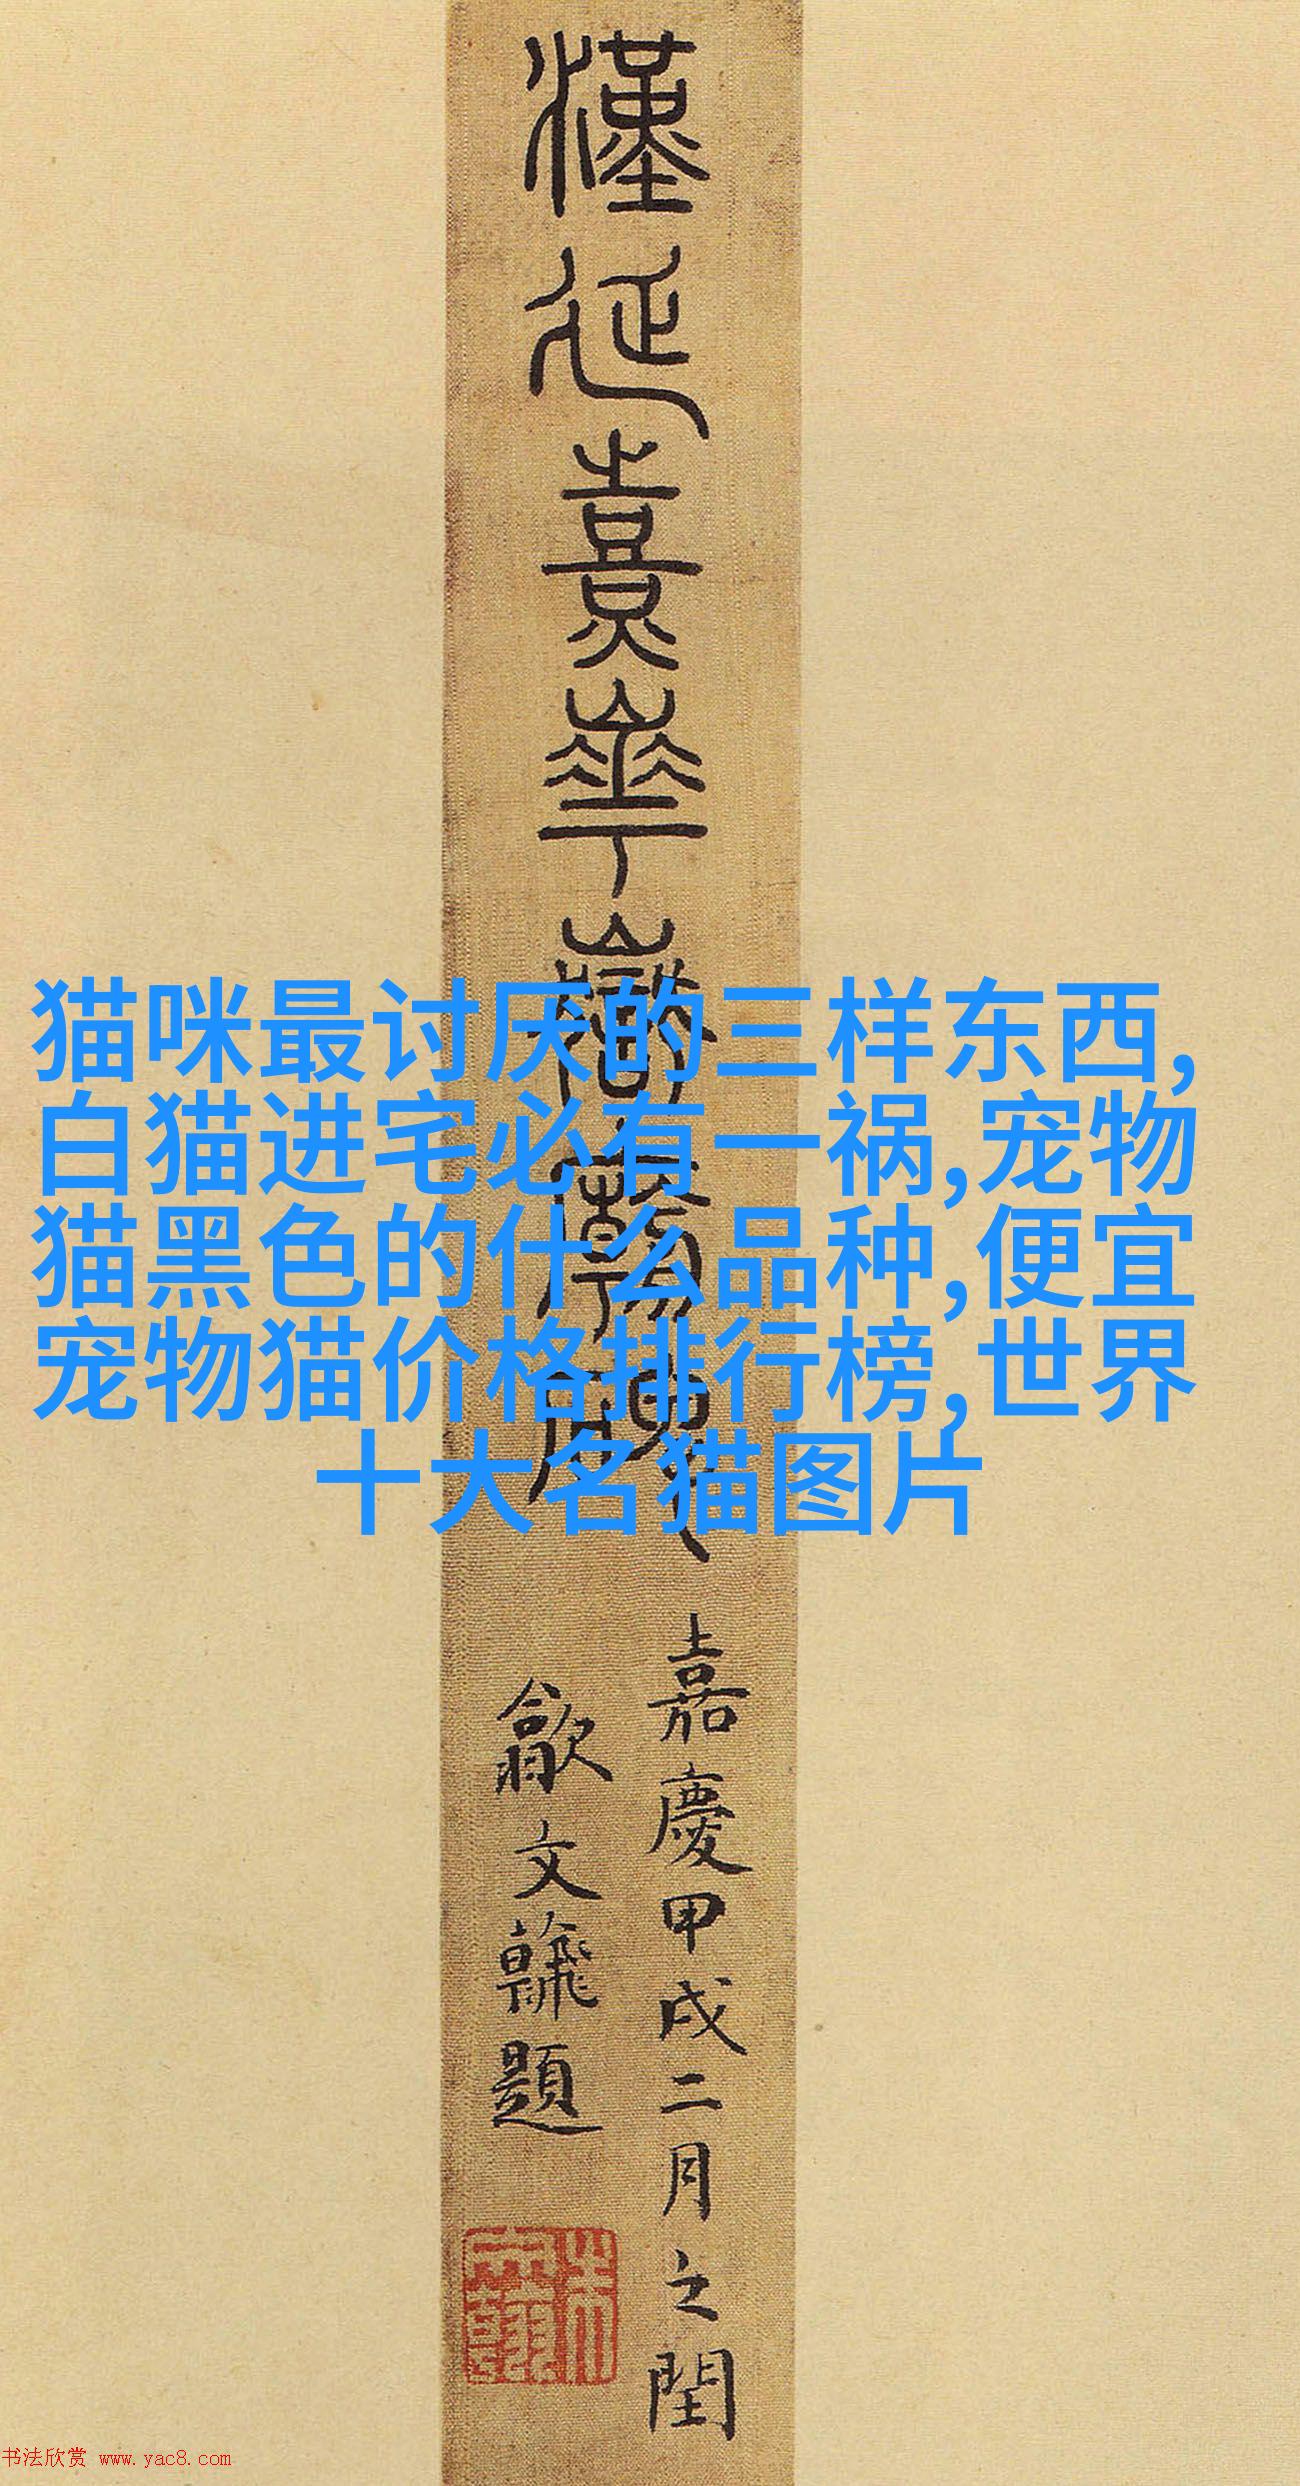 漢延熹華嶽廟碑
嘉慶甲戌二月之閏
歙文𩙥題
猫咪最讨厌的三样东西,
白猫进宅必有一祸,宠物
猫黑色的什么品种,便宜
宠物猫价格排行榜,世界
十大名猫图片
书法欣赏 www.yac8.com